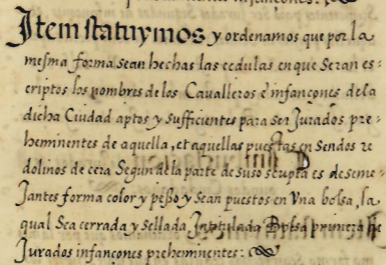 Item statuymos y ordenamos que por la
mesma forma sean hechas las cedulas en que seran es-
criptos los nombres de los Cavalleros e infançones de la
dicha Ciudad aptos y sufficientes para ser Jurados pre-
heminentes de aquella, et aquellas puestas en sendos re
dolinos de cera segun de la parte de suso scripta es deseme-
Jantes forma color y pesso y sean puestos en Una bolsa, la
qual sea cerrada y sellada Intitulada Bolsa primera de
Jurados infancones prehemnentes: